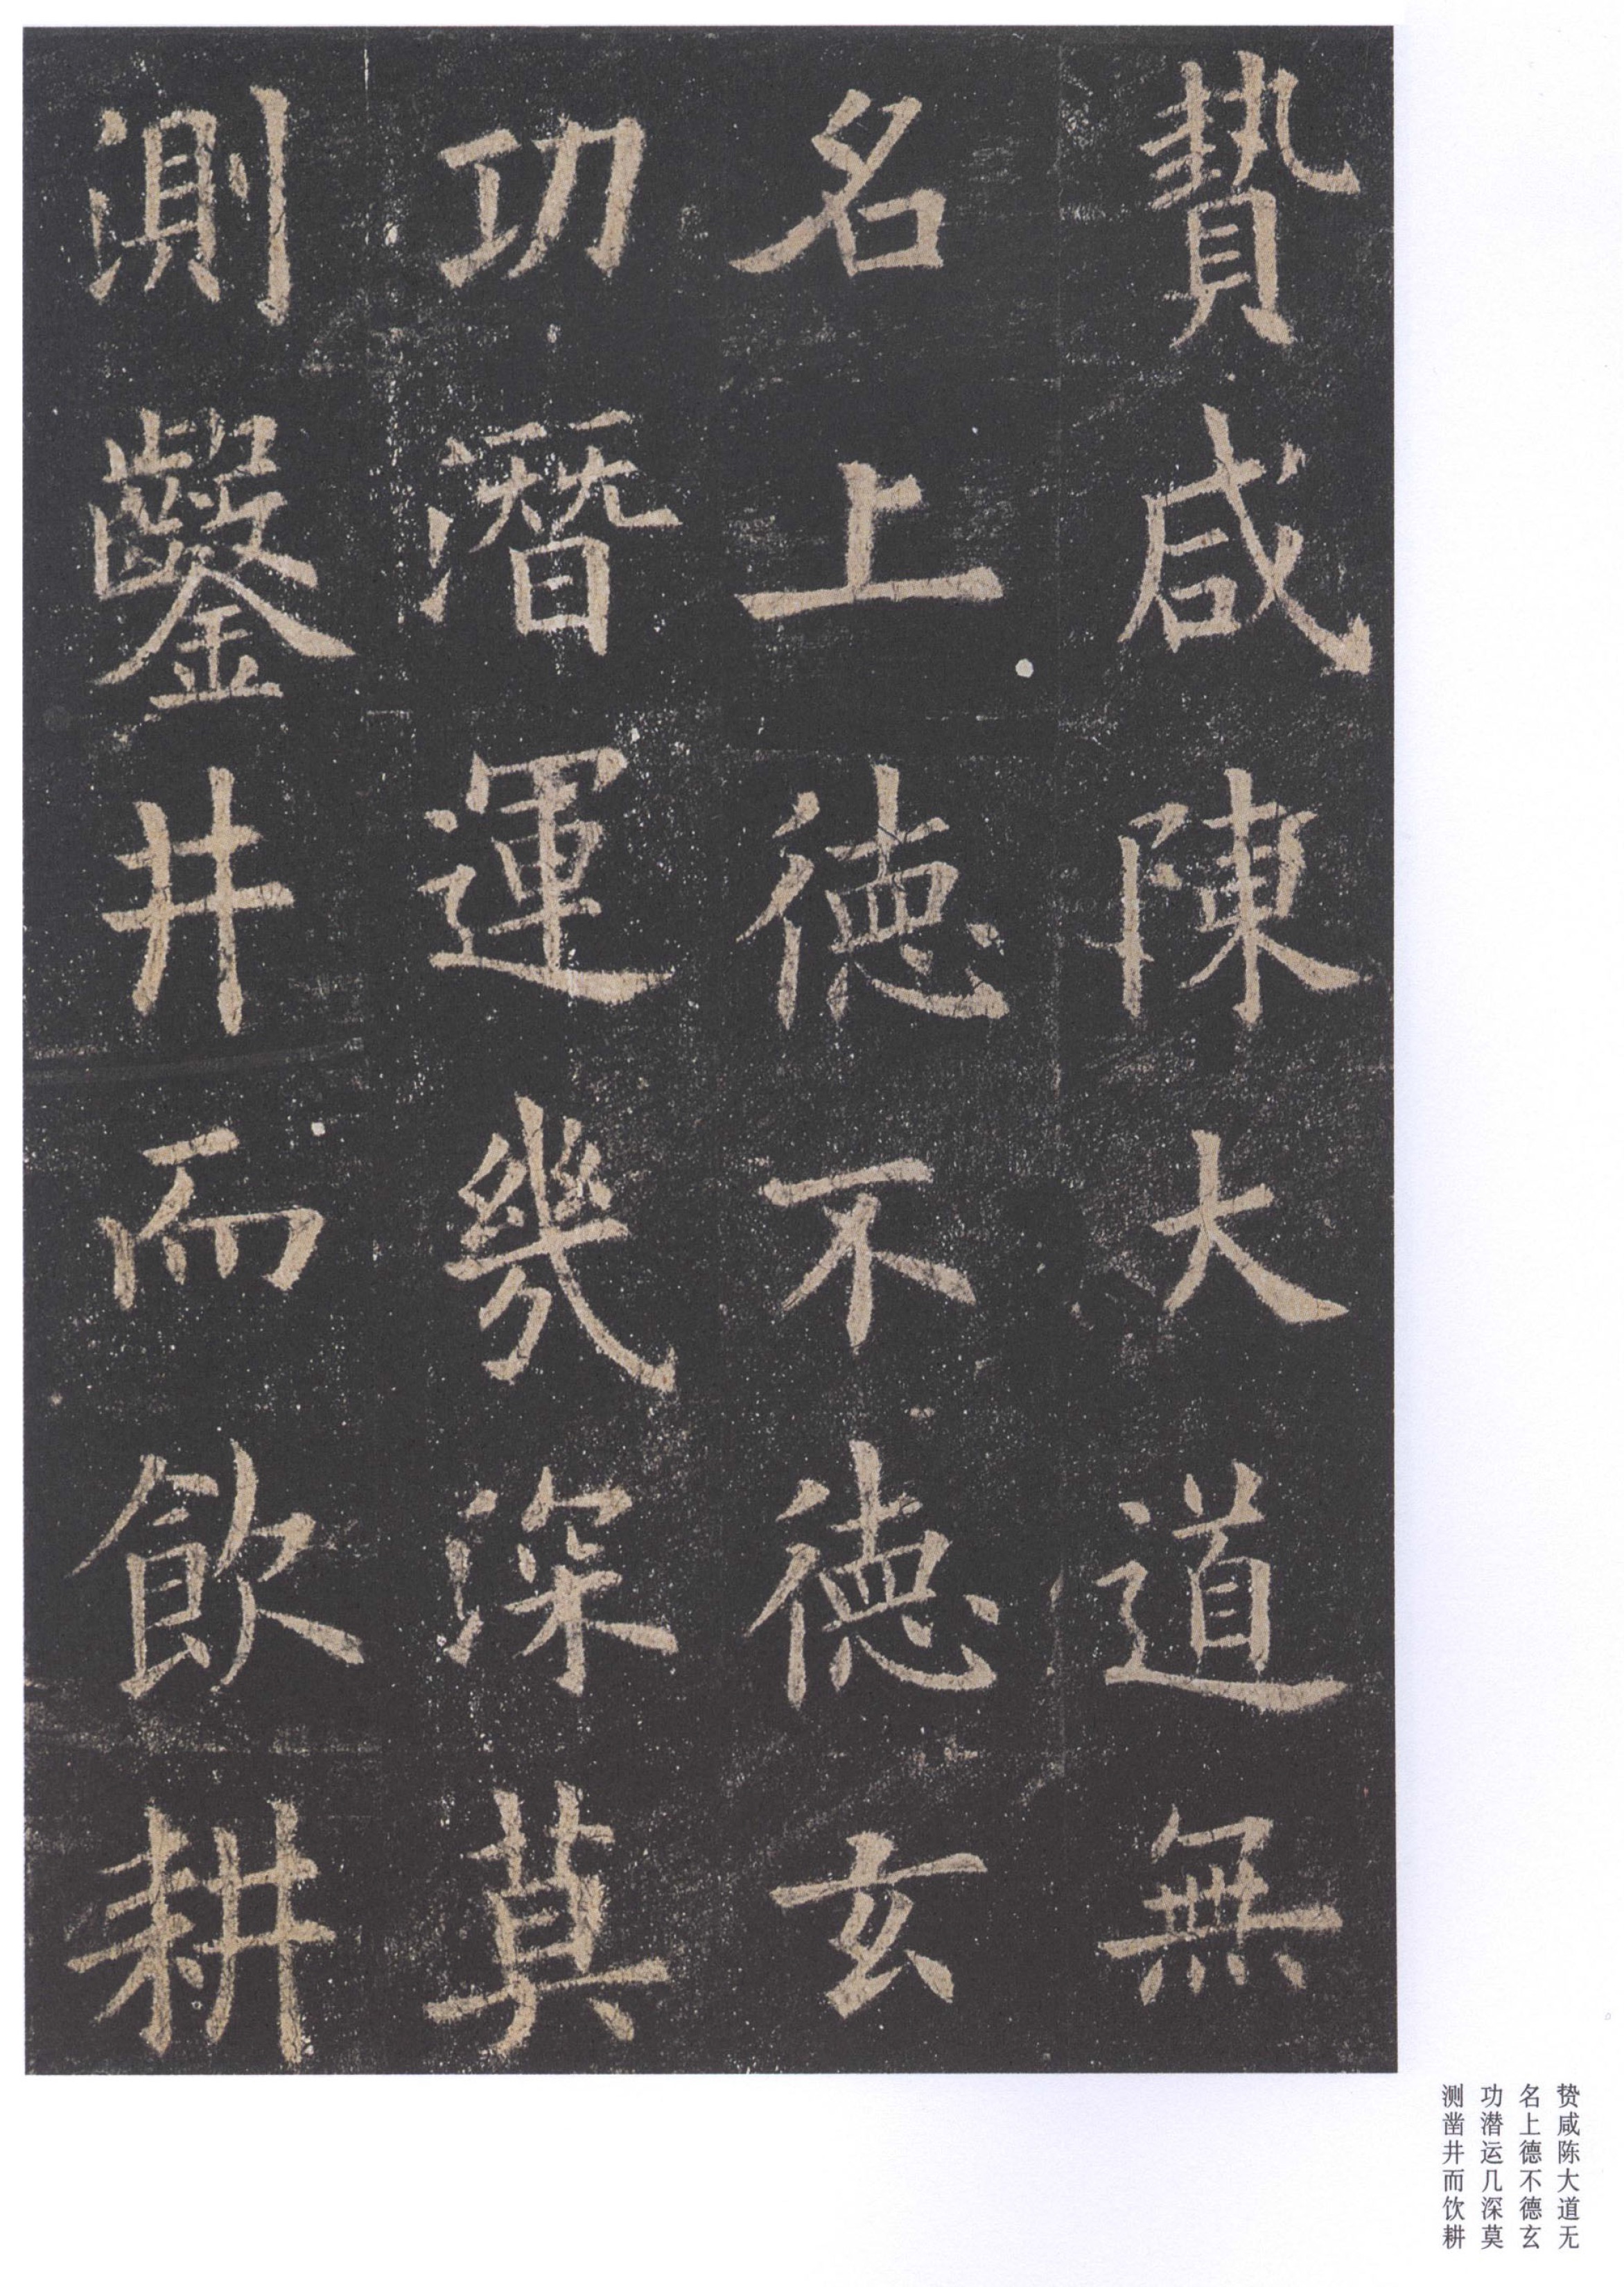 贄咸陳大道無
名上德不德玄
功潛運幾深莫
測鑿井而飲耕
贽咸陈大道无
名上德不德玄
功潜运几深莫
测凿井而饮耕